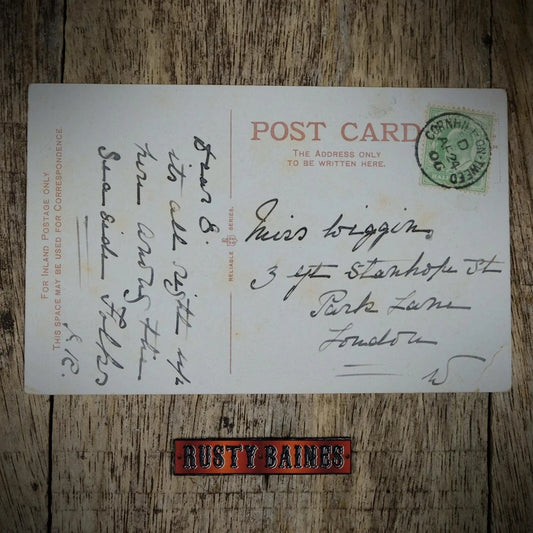 FOR INLAND POSTAGE ONLY
THIS SPACE MAY BE USED FOR CORRESPONDENCE.
Dear E.
its all right up
here among the
Seaside Folks
E.R.
RELIABLE SERIES.
POST CARD
THE ADDRESS ONLY
TO BE WRITTEN HERE.
CORNHILL-ON-TWEED
Miss Wiggin
3 Gt Stanhope St
Park Lane
London
W
RUSTY·BAINES